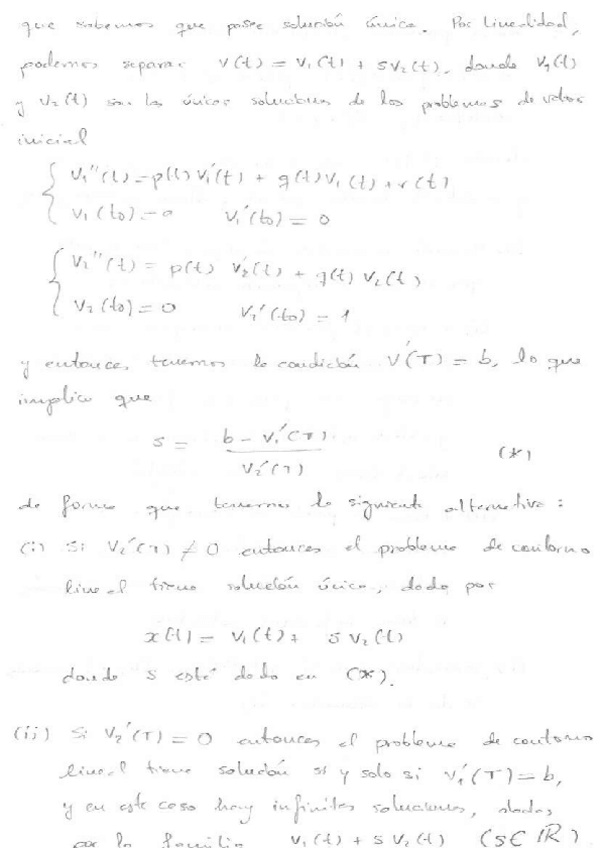 que sabemos que posee solución única. Por linealidad,
podemos separar v(t) = v₁(t) + s v₂(t), donde v₁(t)
y v₂(t) son las únicas soluciones de los problemas de valor
inicial
{ v₁''(t) = p(t) v₁'(t) + q(t) v₁(t) + r(t)
v₁(t₀) = 0 v₁'(t₀) = 0
{ v₂''(t) = p(t) v₂'(t) + q(t) v₂(t)
v₂(t₀) = 0 v₂'(t₀) = 1
y entonces tenemos la condición v'(T) = b, lo que
implica que
s = (b - v₁'(T)) / v₂'(T) (*)
de forma que tenemos la siguiente alternativa:
(i) Si v₂'(T) ≠ 0 entonces el problema de contorno
lineal tiene solución única, dada por
x(t) = v₁(t) + s v₂(t)
donde s está dado en (*).
(ii) Si v₂'(T) = 0 entonces el problema de contorno
lineal tiene solución si y solo si v₁'(T) = b,
y en este caso hay infinitas soluciones, dadas
por la familia v₁(t) + s v₂(t) (s ∈ ℝ).